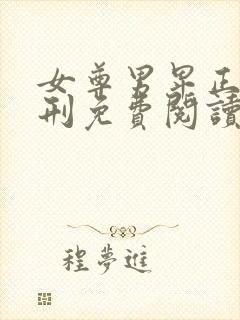 女尊男卑正
刑免費閱讀
程夢進